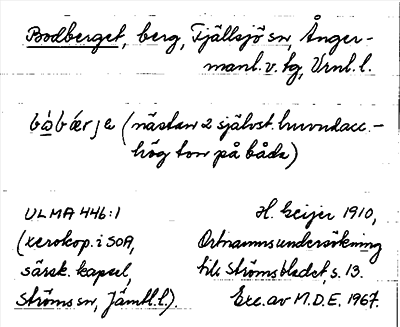 Bodberget, berg, Fjällsjö sn, Ånger-
manl. v. tg, Vrnl. l.
bòbǽrje (nästan 2 självst. huvudacc. -
hög ton på båda)
ULMA 446:1
(xerokop. i SOA,
särsk. kapsel,
Ströms sn, Jämtl. l.).
H. Geijer 1910,
Ortnamnsundersökning
till Strömsbladet, s. 13.
Exc. av M.D.E. 1967.